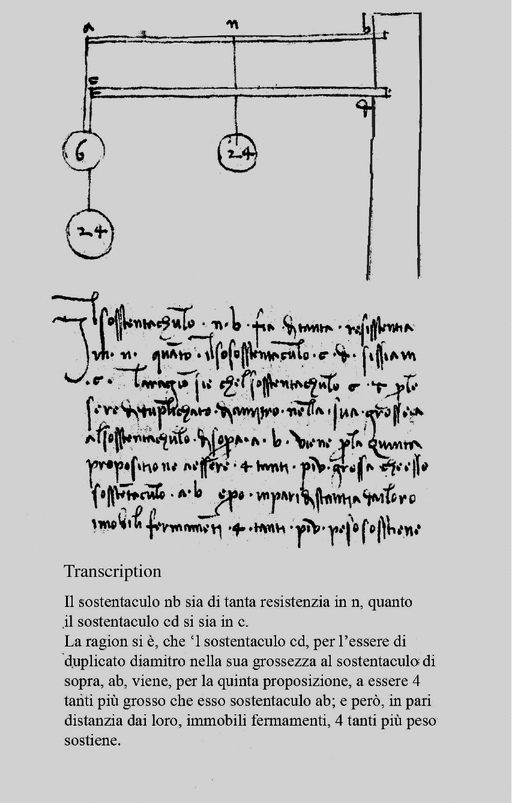 a n b
c
q
6
24
24
Il sosstentachulo . n . b . fia di tanta . resisstentia
in . n . quāto . il sosstentaculo . c d . si ssia in
. c . La ragiō sie chel sosstentachulo c d
duplichato diamitro nella sua grosseza
al sosstentachulo di sopra . a . b . viene p la quinta
propositione a essere . 4 tanti . piu grosso che esso
sosstētaculo . a . b e po in pari distantia dai loro
imobili fermamēti . 4 . tanti . piu . peso sosstiene
Transcription
Il sostentaculo nb sia di tanta resistenzia in n, quanto
il sostentaculo cd si sia in c.
La ragion si è, che ‘l sostentaculo cd, per l’essere di
duplicato diamitro nella sua grossezza al sostentaculo di
sopra, ab, viene, per la quinta proposizione, a essere 4
tanti più grosso che esso sostentaculo ab; e però, in pari
distanzia dai loro, immobili fermamenti, 4 tanti più peso
sostiene.